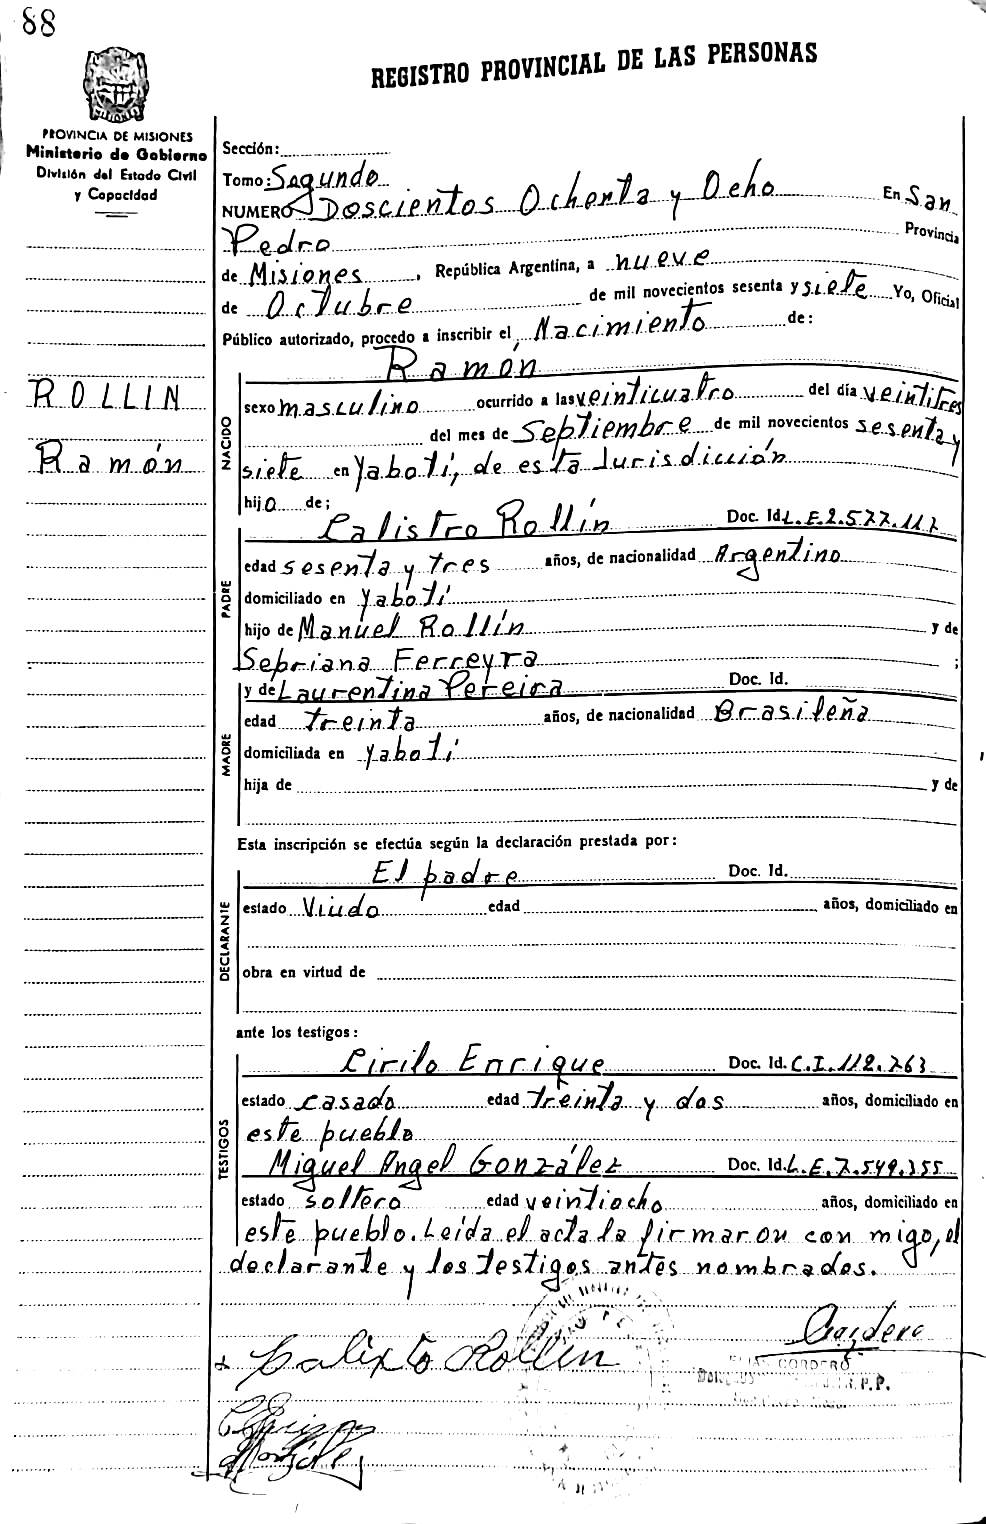 88
REGISTRO PROVINCIAL DE LAS PERSONAS
PROVINCIA DE MISIONES
Ministerio de Gobierno
División del Estado Civil
y Capacidad
Sección:
Tomo: Segundo
NUMERO Doscientos Ochenta y Ocho En San
Pedro Provincia
de Misiones, República Argentina, a nueve
de Octubre de mil novecientos sesenta y siete Yo, Oficial
Público autorizado, procedo a inscribir el Nacimiento de:
Ramón
ROLLIN
Ramón
NACIDO
sexo masculino ocurrido a las veinticuatro del día veintitres
del mes de Septiembre de mil novecientos sesenta y
siete en Yabotí, de esta Jurisdicción
hijo de;
PADRE
Calistro Rollín Doc. Id. L.E.2.577.117
edad sesenta y tres años, de nacionalidad Argentino
domiciliado en Yabotí
hijo de Manuel Rollín y de
Sepriana Ferreyra ;
MADRE
y de Laurentina Pereira Doc. Id.
edad treinta años, de nacionalidad Brasileña
domiciliada en Yabotí
hija de y de
Esta inscripción se efectúa según la declaración prestada por:
DECLARANTE
El padre Doc. Id.
estado Viudo edad años, domiciliado en
obra en virtud de
ante los testigos:
TESTIGOS
Cirilo Enrique Doc. Id. C.I.112.763
estado casado edad treinta y dos años, domiciliado en
este pueblo
Miguel Angel González Doc. Id. L.E.7.549.355
estado soltero edad veintiocho años, domiciliado en
este pueblo. Leída el acta la firmaron con migo, el
declarante y los testigos antes nombrados.
Calixto Rollin
Cordero
ELIAS CORDERO